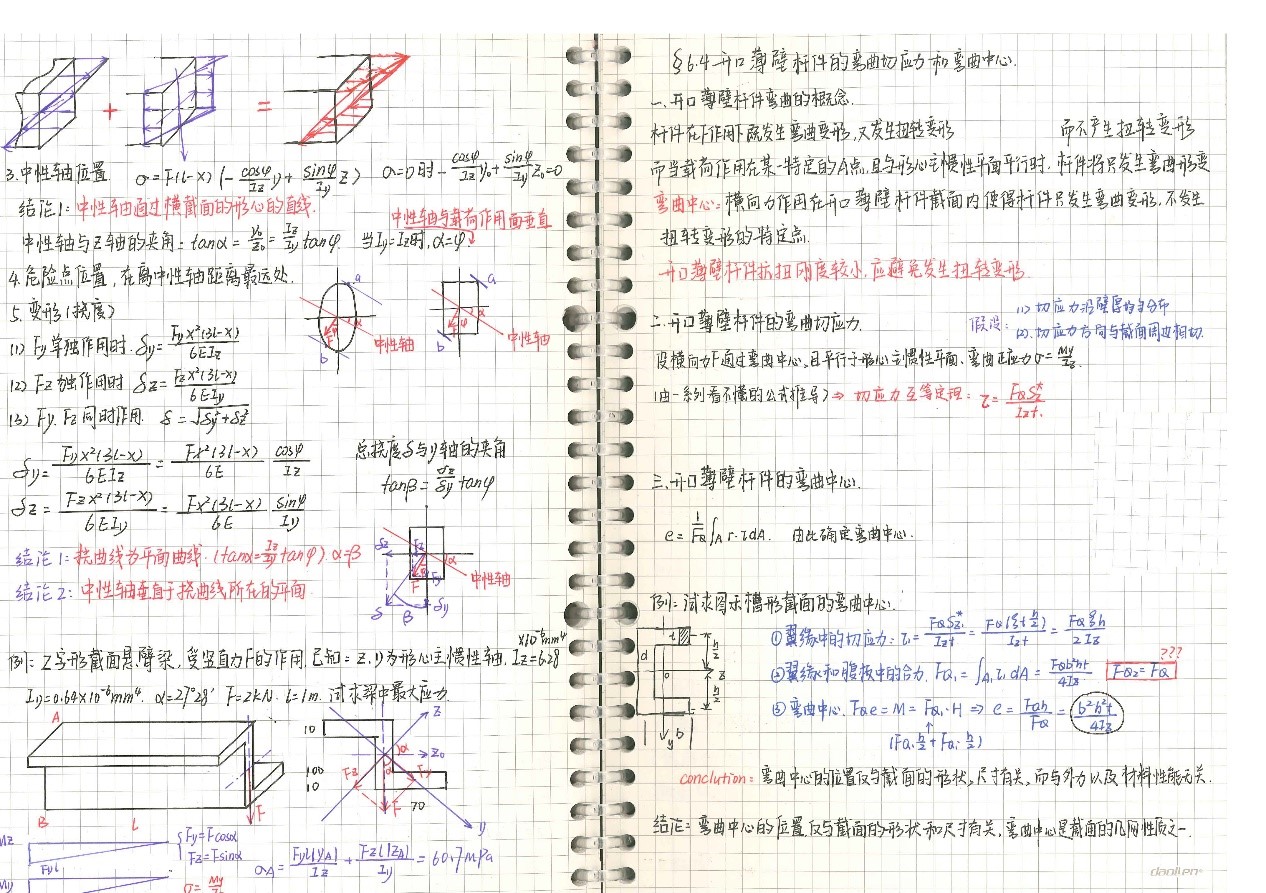 3.中性轴位置 σ=F(l-x)(-cosφ/Iz y+sinφ/Iy z) σ=0时 -cosφ/Iz y₀+sinφ/Iy z₀=0
结论1:中性轴通过横截面的形心的直线.
中性轴与载荷作用面垂直
中性轴与z轴的夹角:tanα=y₀/z₀=Iz/Iy tanφ. 当Iy=Iz时,α=φ
4.危险点位置,在离中性轴距离最远处.
5.变形(挠度)
a
b
F
φ
α
中性轴
a
b
φ
α
中性轴
(1) Fy单独作用时.δy=Fyx²(3l-x)/6EIz
(2) Fz单独作用时 δz=Fzx²(3l-x)/6EIy
(3) Fy.Fz同时作用. δ=√δy²+δz²
δy=Fyx²(3l-x)/6EIz=Fx²(3l-x)/6E cosφ/Iz
δz=Fzx²(3l-x)/6EIy=Fx²(3l-x)/6E sinφ/Iy
总挠度δ与y轴的夹角
tanβ=δz/δy tanφ
结论1:挠曲线为平面曲线.(tanα=Iz/Iy tanφ) α=β
结论2:中性轴垂直于挠曲线所在的平面.
δz
Fz
Fy
F
α
中性轴
δ
β
δy
例:Z字形截面悬臂梁,受竖直力F的作用.已知:z.y为形心主惯性轴.Iz=6.28×10⁻⁶mm⁴
Iy=0.64×10⁻⁶mm⁴. α=27°28′ F=2kN. l=1m.试求梁中最大应力.
A
B
l
F
10
100
10
70
z
z₀
α
α
Fz
Fy
F
y
Mz
Fyl
My
Fy=Fcosα
Fz=Fsinα
σ=My/
σA=Fyl|yA|/Iz+Fzl|zA|/Iy=60.7MPa
§6.4开口薄壁杆件的弯曲切应力和弯曲中心.
一.开口薄壁杆件弯曲的概念.
杆件在F作用下既发生弯曲变形,又发生扭转变形
而不产生扭转变形
而当载荷作用在某一特定的A点,且与形心主惯性平面平行时.杆件将只发生弯曲形变
弯曲中心:横向力作用在开口薄壁杆件截面内使得杆件只发生弯曲变形,不发生
扭转变形的特定点.
开口薄壁杆件抗扭刚度较小,应避免发生扭转变形.
二.开口薄壁杆件的弯曲切应力.
假设:
(1) 切应力沿壁厚均匀分布
(2).切应力方向与截面周边相切.
设横向力F通过弯曲中心,且平行于形心主惯性平面.弯曲正应力σ=My/Iz.
(由一系列看不懂的公式推导)⇒ 切应力互等定理:τ=FQSz*/Izt.
三.开口薄壁杆件的弯曲中心.
e=1/FQ∫A r·τdA. 由此确定弯曲中心.
例:试求图示槽形截面的弯曲中心.
t
d
o
z
h/2
h/2
b
y
①翼缘中的切应力:τ₁=FQSz*/Izt=FQ(ξt h/2)/Izt=FQξh/2Iz
②翼缘和腹板中的合力.FQ₁=∫A₁τ₁dA=FQb²ht/4Iz
FQ₂=FQ
???
③弯曲中心.FQe=M=FQ₁·H ⇒ e=FQ₁h/FQ=b²h²t/4Iz
(FQ₁·h/2+FQ₁·h/2)
conclution:弯曲中心的位置仅与截面的形状,尺寸有关,而与外力以及材料性能无关.
结论:弯曲中心的位置仅与截面的形状和尺寸有关,弯曲中心是截面的几何性质之一.
daolien